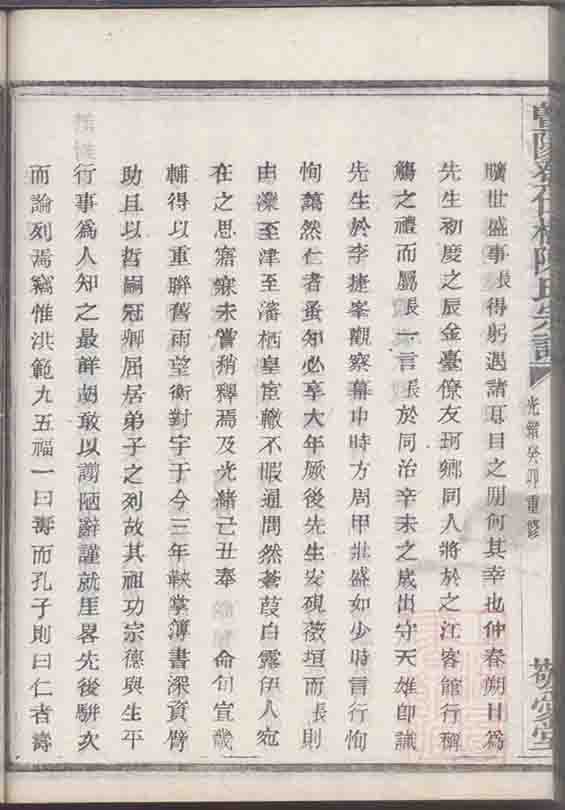 暨陽孝仁楊陳氏宗譜
光緒癸卯重修
敬愛堂
曠世盛事張得躬遇諸耳目之間何其幸也仲春朔日為
先生初度之辰金臺僚友珂鄉同人將於之江客館行稱
觴之禮而屬張一言張於同治辛未之歲出守天雄即識
先生於李捷峯觀察幕中時方周甲壯盛如少時言行恂
恂藹然仁者蚤知必享大年厥後先生安硯薇垣而張則
由灤至津至瀋栖皇宦轍不暇通問然蒼葭白露伊人宛
在之思寤寐未嘗稍釋焉及光緒己丑奉 命旬宣畿
輔得以重聯舊雨望衡對宇于今三年鞅掌簿書深資臂
助且以哲嗣冠卿屈居弟子之列故其祖功宗德與生平
行事為人知之最詳胡敢以謭陋辭謹就里畧先後駢次
而論列焉竊惟洪範九五福一曰壽而孔子則曰仁者壽